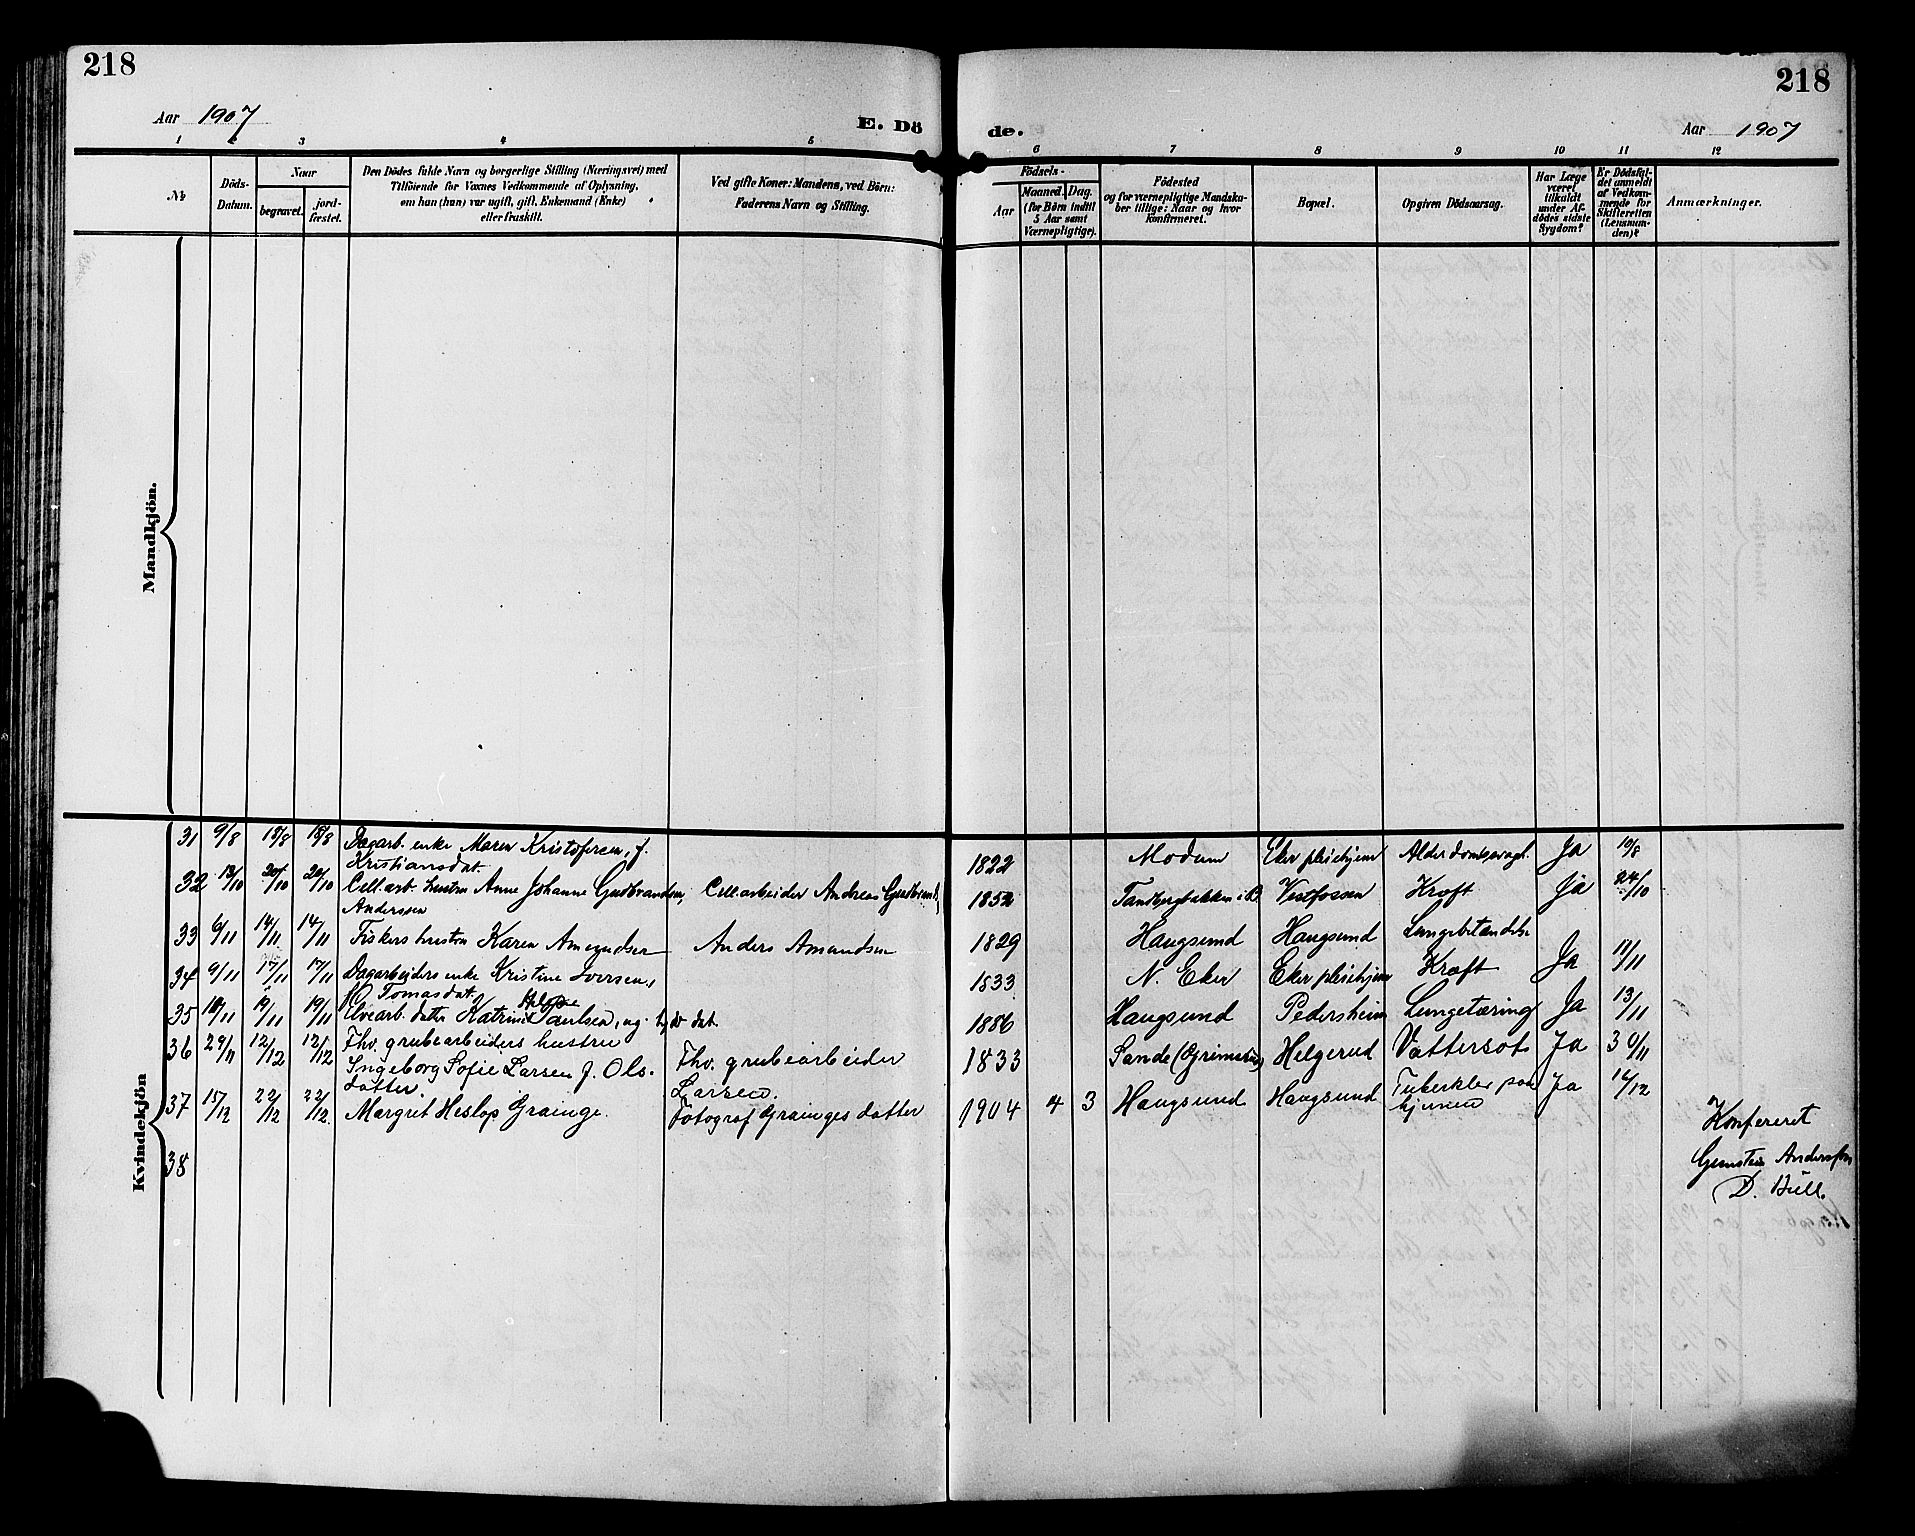 218
Aar 1907
E. Dö
1 2 3 4 5
№
Döds-
Datum.
Naar
begravet.
jord-
fæstet.
Den Dödes fulde Navn og borgerlige Stilling (Næringsvei) med
Tilföiende for Voxnes Vedkommende af Oplysning,
om han (hun) var ugift, gift, Enkemand (Enke)
eller fraskilt.
Ved gifte Koner: Mandens, ved Börn:
Faderens Navn og Stilling.
Mandkjön.
Kvindekjön
31 9/8 18/8 18/8 Dagarb. enke Maren Kristofersen, f.
Kristiansdat.
32 13/10 20/10 20/10 Cell.arb. hustru Anne Johanne Gudbrandsen, Cell.arbeider Andreas
Anderssen
33 6/11 14/11 14/11 Fiskers hustru Karen Amundsen Anders Amundsen
34 9/11 17/11 17/11 Dagarbeiders enke Kristine Iversen,
Tomasdat.
35 10/11 19/11 19/11 Elvearb. datter Katrine Helgine Paulsen, ug.
36 29/11 12/12 12/12 Fhv. grubearbeiders hustru
Ingeborg Sofie Larsen f. Ols-
datter.
Fhv. grubearbeider
Larsen.
37 15/12 22/12 22/12 Margret Heslop Grainge. Fotograf Grainges datter
38
218
de.
Aar 1907
6 7 8 9 10 11 12
Födsels-
Aar
Maaned. Dag.
(for Børn indtil
5 Aar samt
Værnepligtige).
Födested
og for værnepligtige Mandska-
ber tillige: Naar og hvor
Konfirmeret.
Bopæl.
Opgiven Dödsaarsag.
Har Læge
været
tilkaldt
under Af-
dödes sidste
Sygdom?
Er Dödsfal-
det anmeldt
af Vedkom-
mende for
Skifteretten
(Lensman-
den)?
Anmærkninger.
1822 Modum Eker pleiehjem Alderdomssvagh. Ja 10/8
1852 Tandbergbakken i Vestfossen Kræft Ja 24/10
1829 Haugsund Haugsund Lungebetændelse
1833 N. Eker Eker pleiehjem Kræft Ja 11/11
1886 Haugsund Pedersheim Lungetæring Ja 13/11
1833 Sande Helgerud Vattersot Ja 30/11
1904 4 3 Haugsund Haugsund Tuberkler paa
hjernen
Ja 16/12
Konfereret
Andersen
D. Bull.